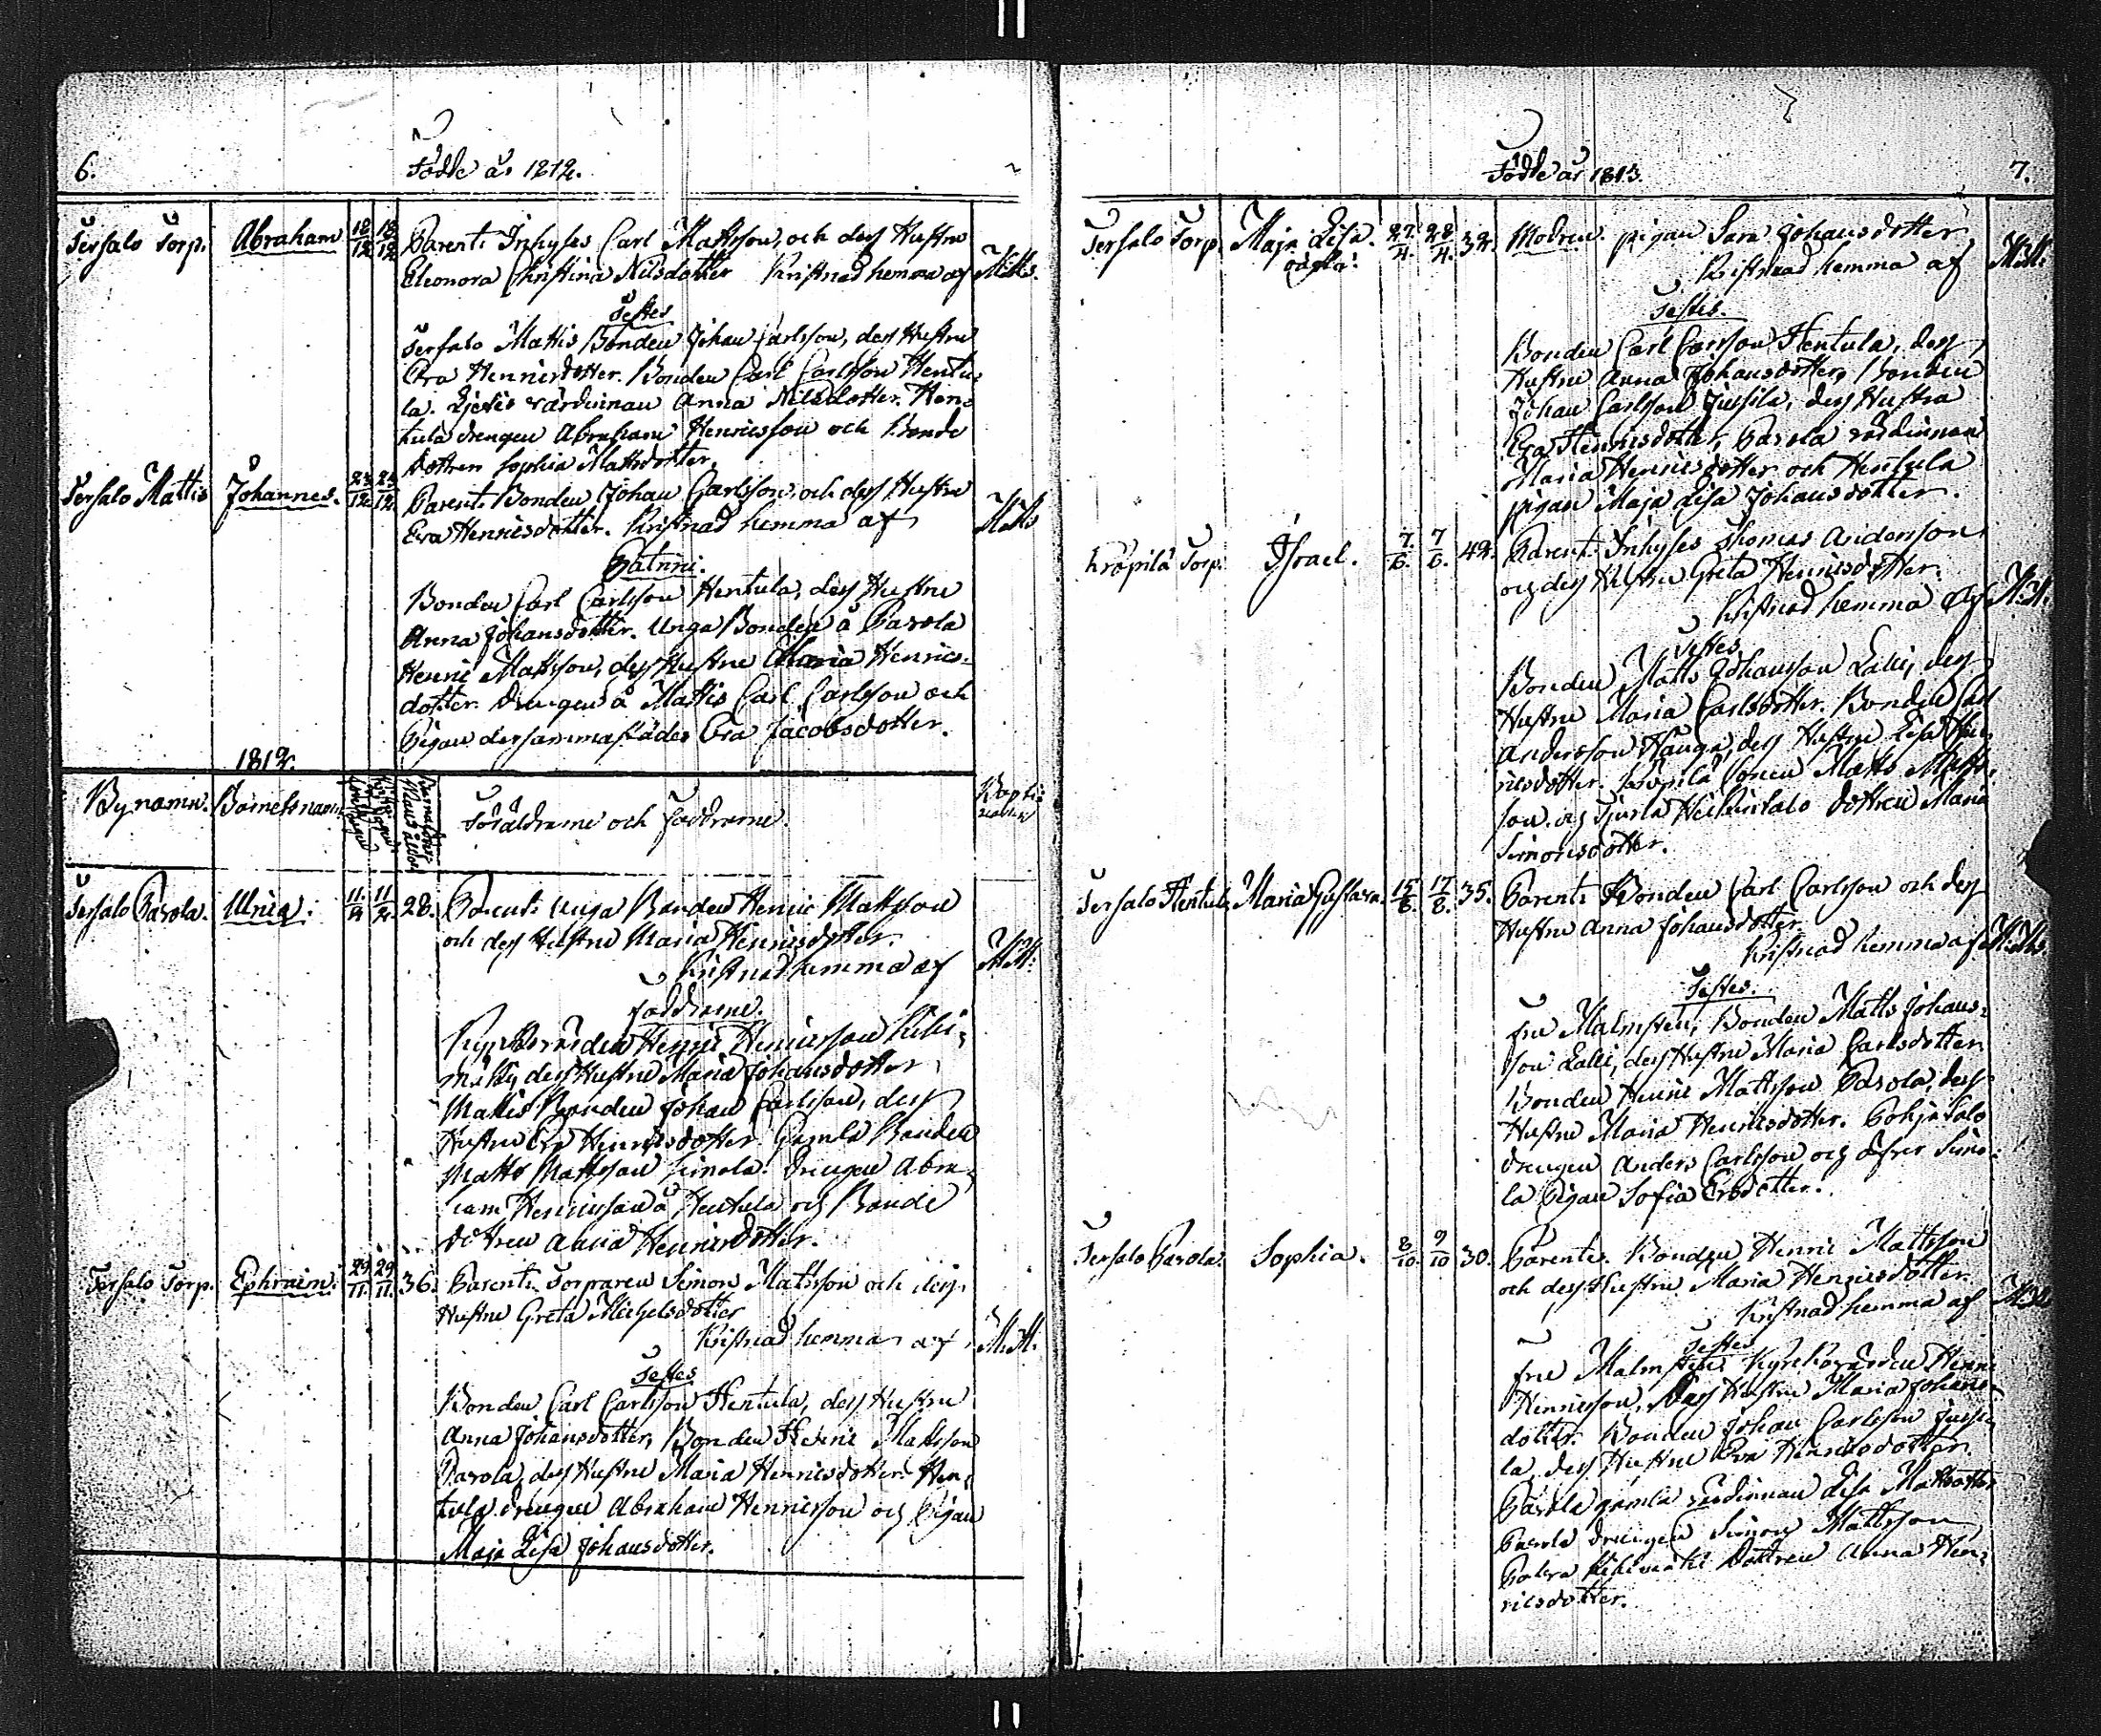 6.
Födde år 1812.
Tersalo Torp. Abraham 18/12 18/12 Parent: Inhyses Carl Mattsson, och dess Hustru
Eleonora Christina Nilsdotter Kristnad hemma af
Testes
Tersalo Mattis Bonden Johan Carlsson, dess Hustru
Eva Henricsdotter. Bonden Carl Carlsson Hentu-
la. värdinnan Anna Nilsdotter. Hen-
tula drengen Abraham Henricsson och Bonde
dottren Sophia Mattsdotter.
Tersalo Mattis Johannes. 23/12 24/12 Parent: Bonden Johan Carlsson, och dess Hustru
Eva Henricsdotter. Kristnad hemma af
Patrini.
Bonden Carl Carlsson Hentula, dess Hustru
Anna Johansdotter. Unga Bonden å Parola
Henric Mattsson, dess Hustru Maria Henrics-
dotter. Drengen å Mattis Carl Carlsson och
Pigan dersammastädes Eva Jacobsdotter.
1812.
Bynamn. Barnets namn
Föräldrarne och Faddrarne.
Tersalo Parola. Ulrica. 11/2 11/2 28. Parent: unga Bonden Henric Mattsson
och dess Hustru Maria Henricsdotter.
Kristnad hemma af M.M.
Faddrarne.
Kyrkovärden Henric Henricsson Kihi-
mäki, dess Hustru Maria Johansdotter
Mattis Bonden Johan Carlsson, dess
Hustru Eva Henricsdotter. Gamla Bonden
Matts Mattsson Simola. Drengen Abra-
ham Henricsson å Hentula och Bonde
dottren Anna Henricsdotter.
Tersalo Torp. Ephraim. 29/11 29/11 36. Parent: Torparen Simon Mattsson och dess
Hustru Greta Michelsdotter
Kristnad hemma af M.M.
Testes
Bonden Carl Carlsson Hentula, dess Hustru
Anna Johansdotter, Bonden Henric Mattsson
Parola, dess Hustru Maria Henricsdotter. Hen-
tula drengen Abraham Henricsson och Pigan
Maja Lisa Johansdotter.
Födde år 1813.
7.
Tersalo Torp. Maja Lisa. oägta. 27/4. 28/4. 32. Modren: pigan Sara Johansdotter
Kristnad hemma af M.M.
Testes.
Bonden Carl Carlsson Hentula, dess
Hustru Anna Johansdotter, Bonden
Johan Carlsson Jussila, dess Hustru
Eva Henricsdotter, Parola värdinnan
Maria Henricsdotter och Hentula
pigan Maja Lisa Johansdotter.
Kröpilä Torp. Israel. 7/6. 7/6. 42. Parent: Inhyses Thomas Andersson
och dess Hustru Greta Henricsdotter.
Kristnad hemma af M.M.
Testes
Bonden Matts Johansson Lalli, dess
Hustru Maria Carlsdotter. Bonden Carl
Andersson Hauga, dess Hustru Lisa Hen-
ricsdotter. Kröpilä Sonen Matts Matts-
son och dottren Maria
Simonsdotter.
Tersalo Hentula Maria Gustava. 15/8. 17/8. 35. Parent: Bonden Carl Carlsson och dess
Hustru Anna Johansdotter.
Kristnad hemma af
Testes.
Fru Malmsten, Bonden Matts Johans-
son Lalli, dess Hustru Maria Carlsdotter
Bonden Henric Mattsson Parola, dess
Hustru Maria Henricsdotter. Pohjasalo
drengen Anders Carlsson och öfver Simo-
la Pigan Sofia Ersdotter.
Tersalo Parola. Sophia. 8/10. 9/10 30. Parente. Bonden Henric Mattsson
och dess Hustru Maria Henricsdotter.
Kristnad hemma af M.M.
Testes
Fru Malmsten, Kyrkovärden Henric
Henricsson, dess Hustru Maria Johans-
dotter. Bonden Johan Carlsson Jussi-
la, dess Hustru Eva Henricsdotter
Parola gamla värdinnan Lisa Mattsdotter
Parola drengen Simon Mattsson
Kihimäki dottren Anna Hen-
ricsdotter.